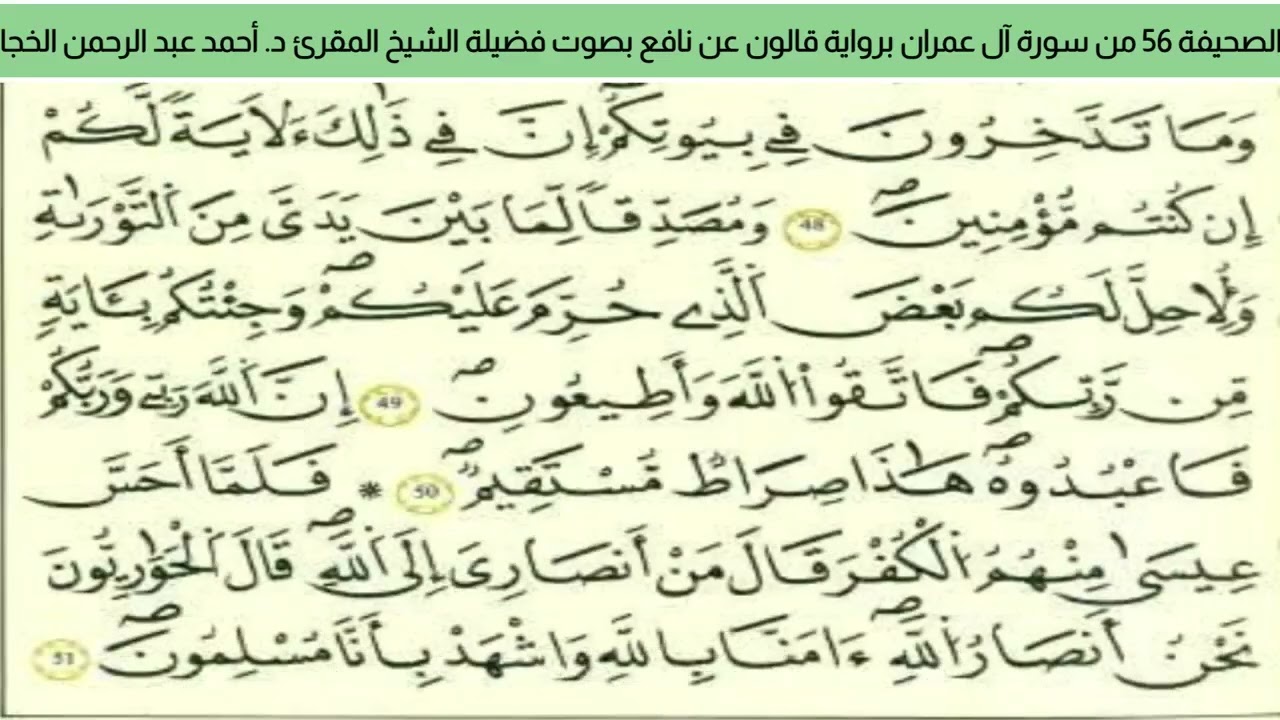 الصحيفة 56 من سورة آل عمران برواية قالون عن نافع بصوت فضيلة الشيخ المقرئ د. أحمد عبد الرحمن الخجا
وَمَا تَدَّخِرُونَ فِے بِيُوتِكُمُۥٓ إِنَّ فِے ذَٰلِكَ ءَلَايَةٗ لَّكُمْ
إِن كُنتُم مُّؤْمِنِينَ ص 48 وَمُصَدِّقاٗ لِّمَا بَيْنَ يَدَىَّ مِنَ اَ۬لتَّوْرَىٰةِ
وَلِأُحِلَّ لَكُم بَعْضَ اَ۬لَّذِے حُرِّمَ عَلَيْكُمْ ص وَجِئْتُكُم بِـَٔايَةٖ
مِّن رَّبِّكُمْ ص فَاتَّقُوا۟ اُ۬للَّهَ وَأَطِيعُونِ ص 49 إِنَّ اَ۬للَّهَ رَبِّے وَرَبُّكُمْ
فَاعْبُدُوهُ ص هَٰذَا صِرَاطٌ مُّسْتَقِيمٌ ص 50 * فَلَمَّا أَحَسَّ
عِيسَىٰ مِنْهُمُ اُ۬لْكُفْرَ قَالَ مَنْ أَنصَارِىَ إِلَى اَ۬للَّهِ ص قَالَ اَ۬لْحَوَارِيُّونَ
نَحْنُ أَنصَارُ اُ۬للَّهِ ص ءَامَنَّا بِاللَّهِ وَاشْهَدْ بِأَنَّا مُسْلِمُونَ ص 51